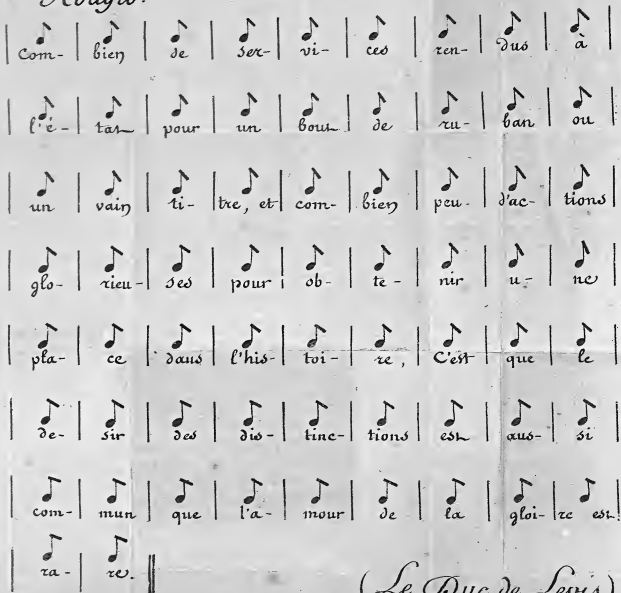 Adagio.
Com- bien de ser- vi- ces ren- dus à
l'é- tat pour un bout de ru- ban ou
un vain ti- tre, et com- bien peu d'ac- tions
glo- rieu- ses pour ob- te- nir u- ne
pla- ce dans l'his- toi- re, C'est que le
de- sir des dis- tinc- tions est aus- si
com- mun que l'a- mour de la gloi- re est
ra- re.
(Le Duc de Levis)